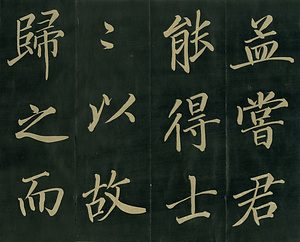 孟嘗君
能得士
〻以故
歸之而